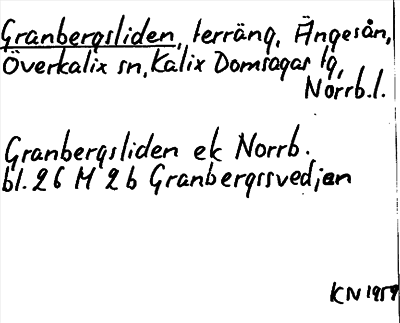 Granbergsliden, terräng, Ängesån,
Överkalix sn, Kalix Domsagas tg,
Norrb.l.
Granbergsliden ek Norrb.
bl. 26 M 2b Granbergssvedjan
KN 1959